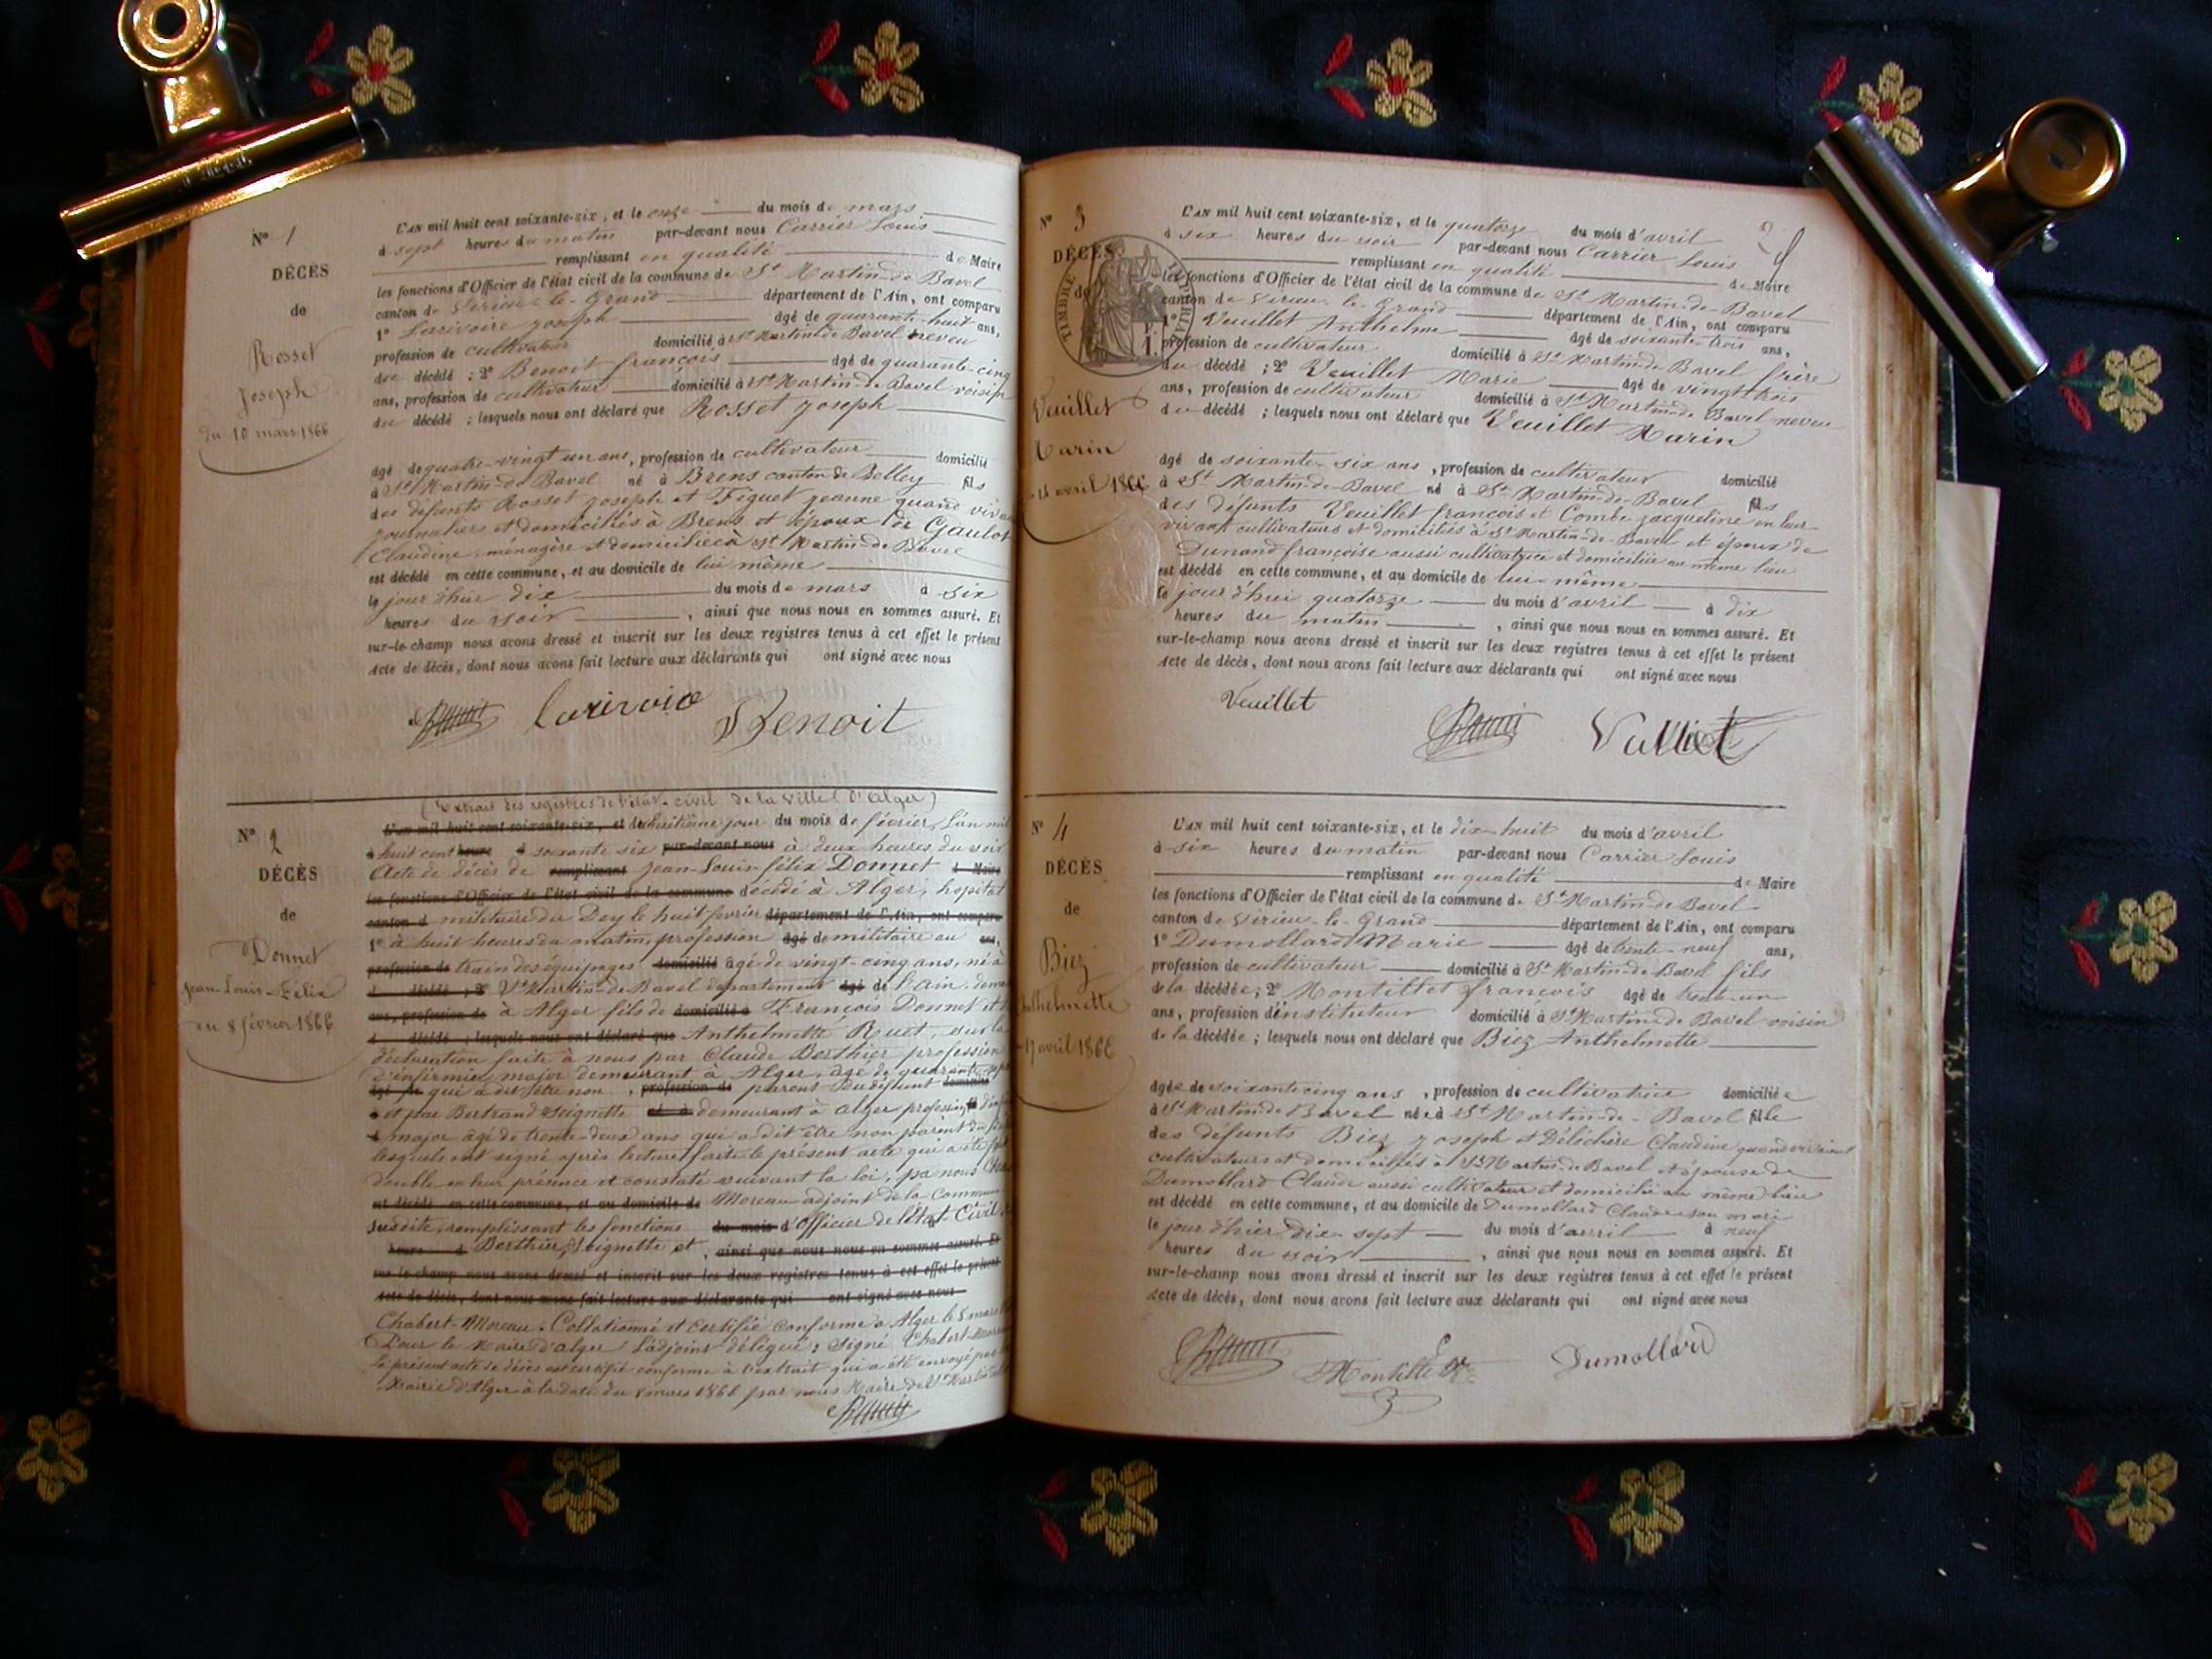 N° 1
DÉCÈS
de
Rosset
Joseph
du 10 mars 1866
L'AN mil huit cent soixante-six, et le onze du mois de mars
à sept heures du matin par-devant nous Carrier Louis
remplissant en qualité de Maire
les fonctions d'Officier de l'état civil de la commune de St Martin-de Bavel
canton de Virieu-le-Grand département de l'Ain, ont comparu
1° Larivoire Joseph âgé de quarante-huit ans,
profession de cultivateur domicilié à St Martin de Bavel neveu
du décédé ; 2° Benoit françois âgé de quarante-cinq
ans, profession de cultivateur domicilié à St Martin-de Bavel voisin
du décédé ; lesquels nous ont déclaré que Rosset Joseph
âgé de quatre-vingt un ans, profession de cultivateur domicilié
à St Martin-de Bavel né à Brens canton de Belley fils
des défunts Rosset Joseph et Figuet Jeanne quand
journaliers et domiciliés à Brens et époux de
Claudine, ménagère et domiciliée à St Martin-de Bavel
est décédé en cette commune, et au domicile de lui même
le jour d'hier dix du mois de mars à six
heures du soir , ainsi que nous nous en sommes assuré. Et
sur-le-champ nous avons dressé et inscrit sur les deux registres tenus à cet effet le présent
acte de décès, dont nous avons fait lecture aux déclarants qui ont signé avec nous
Benoit
N° 2
DÉCÈS
de
Donnet
Jean-Louis-Félix
du 8 février 1866
(Extrait des registres de l'état-civil de la Ville d'Alger)
L'an mil huit cent soixante-six, et du huitième jour du mois de février, l'an mil
huit cent heure à soixante six par-devant nous à deux heures du soir
Acte de décès de remplissant Jean-Louis-félix Donnet de Maire
les fonctions d'Officier de l'état civil de la commune décédé à Alger, hopital
canton d militaire du Dey le huit fevrier département de l'Ain, ont comparu
1° à huit heures du matin, profession âgé de militaire au ans,
profession de train des équipages domicilié âgé de vingt-cinq ans, né à
d décédé ; 2° St Martin-de Bavel departement âgé de de l'ain,
ans, profession de à Alger fils de domicilié à François Donnet et
d décédé ; lesquels nous ont déclaré que Anthelmette Ruet, sur la
déclaration faite à nous par Claude Berthier profession
d'infirmier major demeurant à Alger, âgé de quarante
qui a dit être non , profession de parent du défunt domicilié
et par Bertrand Seignette et à demeurant à alger profession
major âgé de trente-deux ans qui a dit être non parent du
lesquels ont signé après lecture faite le présent acte qui a été
double en leur présence et constaté suivant la loi, pa nous
est décédé en cette commune, et au domicile de Moreau adjoint de la Commune
Susdite, remplissant les fonctions du mois d'officier de l'état-Civil
heure d Berthier, Seignette et , ainsi que nous nous en sommes assuré. Et
sur-le-champ nous avons dressé et inscrit sur les deux registres tenus à cet effet le présent
acte de décès, dont nous avons fait lecture aux déclarants qui ont signé avec nous
Chabert-Moreau. Collationné et certifié conforme à Alger le 5 mars
Pour le Maire d'alger l'adjoint délégué : Signé Chabert-Moreau
Le présent acte de décès est certifié conforme à l'extrait qui a été envoyé par
Mairie d'Alger à la date du 5 mars 1866 par nous Maire de St
N° 3
DÉCÈS
de
TIMBRE
Veuillet
Marin
14 avril 1866
L'AN mil huit cent soixante-six, et le quatorze du mois d'avril
à six heures du soir par-devant nous Carrier Louis
remplissant en qualité de Maire
les fonctions d'Officier de l'état civil de la commune de St Martin-de-Bavel
canton de Virieu-le-Grand département de l'Ain, ont comparu
1° Veuillet Anthelme âgé de soixante-trois ans,
profession de cultivateur domicilié à St Martin-de Bavel frère
du décédé ; 2° Veuillet Marie âgé de vingt trois
ans, profession de cultivateur domicilié à St Martin-de Bavel neveu
du décédé ; lesquels nous ont déclaré que Veuillet Marin
âgé de soixante-six ans , profession de cultivateur domicilié
à St Martin-de-Bavel né à St Martin-de-Bavel fils
des défunts Veuillet françois et Combe jacqueline en leur
vivant cultivateurs et domiciliés à St Martin-de-Bavel et époux de
Dunand françoise aussi cultivatrice et domiciliée au même lieu
est décédé en cette commune, et au domicile de lui-même
le jour d'hui quatorze du mois d'avril à dix
heures du matin , ainsi que nous nous en sommes assuré. Et
sur-le-champ nous avons dressé et inscrit sur les deux registres tenus à cet effet le présent
acte de décès, dont nous avons fait lecture aux déclarants qui ont signé avec nous
Veuillet
N° 4
DÉCÈS
de
Biez
Anthelmette
17 avril 1866
L'AN mil huit cent soixante-six, et le dix-huit du mois d'avril
à six heures du matin par-devant nous Carrier Louis
remplissant en qualité de Maire
les fonctions d'Officier de l'état civil de la commune de St Martin-de Bavel
canton de Virieu-le-Grand département de l'Ain, ont comparu
1° Dumollard Marie âgé de trente-neuf ans,
profession de cultivateur domicilié à St Martin-de Bavel fils
de la décédée ; 2° Montillet françois âgé de trente-un
ans, profession d'instituteur domicilié à St Martin-de Bavel voisin
de la décédée ; lesquels nous ont déclaré que Biez Anthelmette
âgée de soixante cinq ans , profession de cultivatrice domiciliée
à St Martin-de Bavel née à St Martin-de-Bavel fille
des défunts Biez Joseph et Déléchère Claudine quand vivaient
cultivateurs et domiciliés à St Martin-de Bavel et épouse de
Dumollard Claude aussi cultivateur et domicilié au même lieu
est décédé en cette commune, et au domicile de Dumollard Claude son mari
le jour d'hier dix-sept du mois d'avril à neuf
heures du soir , ainsi que nous nous en sommes assuré. Et
sur-le-champ nous avons dressé et inscrit sur les deux registres tenus à cet effet le présent
acte de décès, dont nous avons fait lecture aux déclarants qui ont signé avec nous
Dumollard